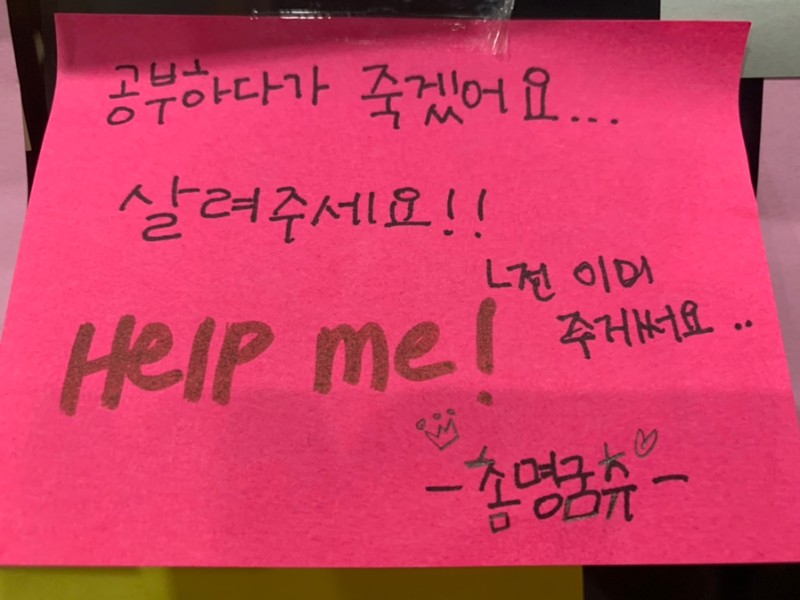 공부하다가 죽겠어요...
살려주세요!!
ㄴ전 이미
주게써요..
Help me!
-촘명굼츄-